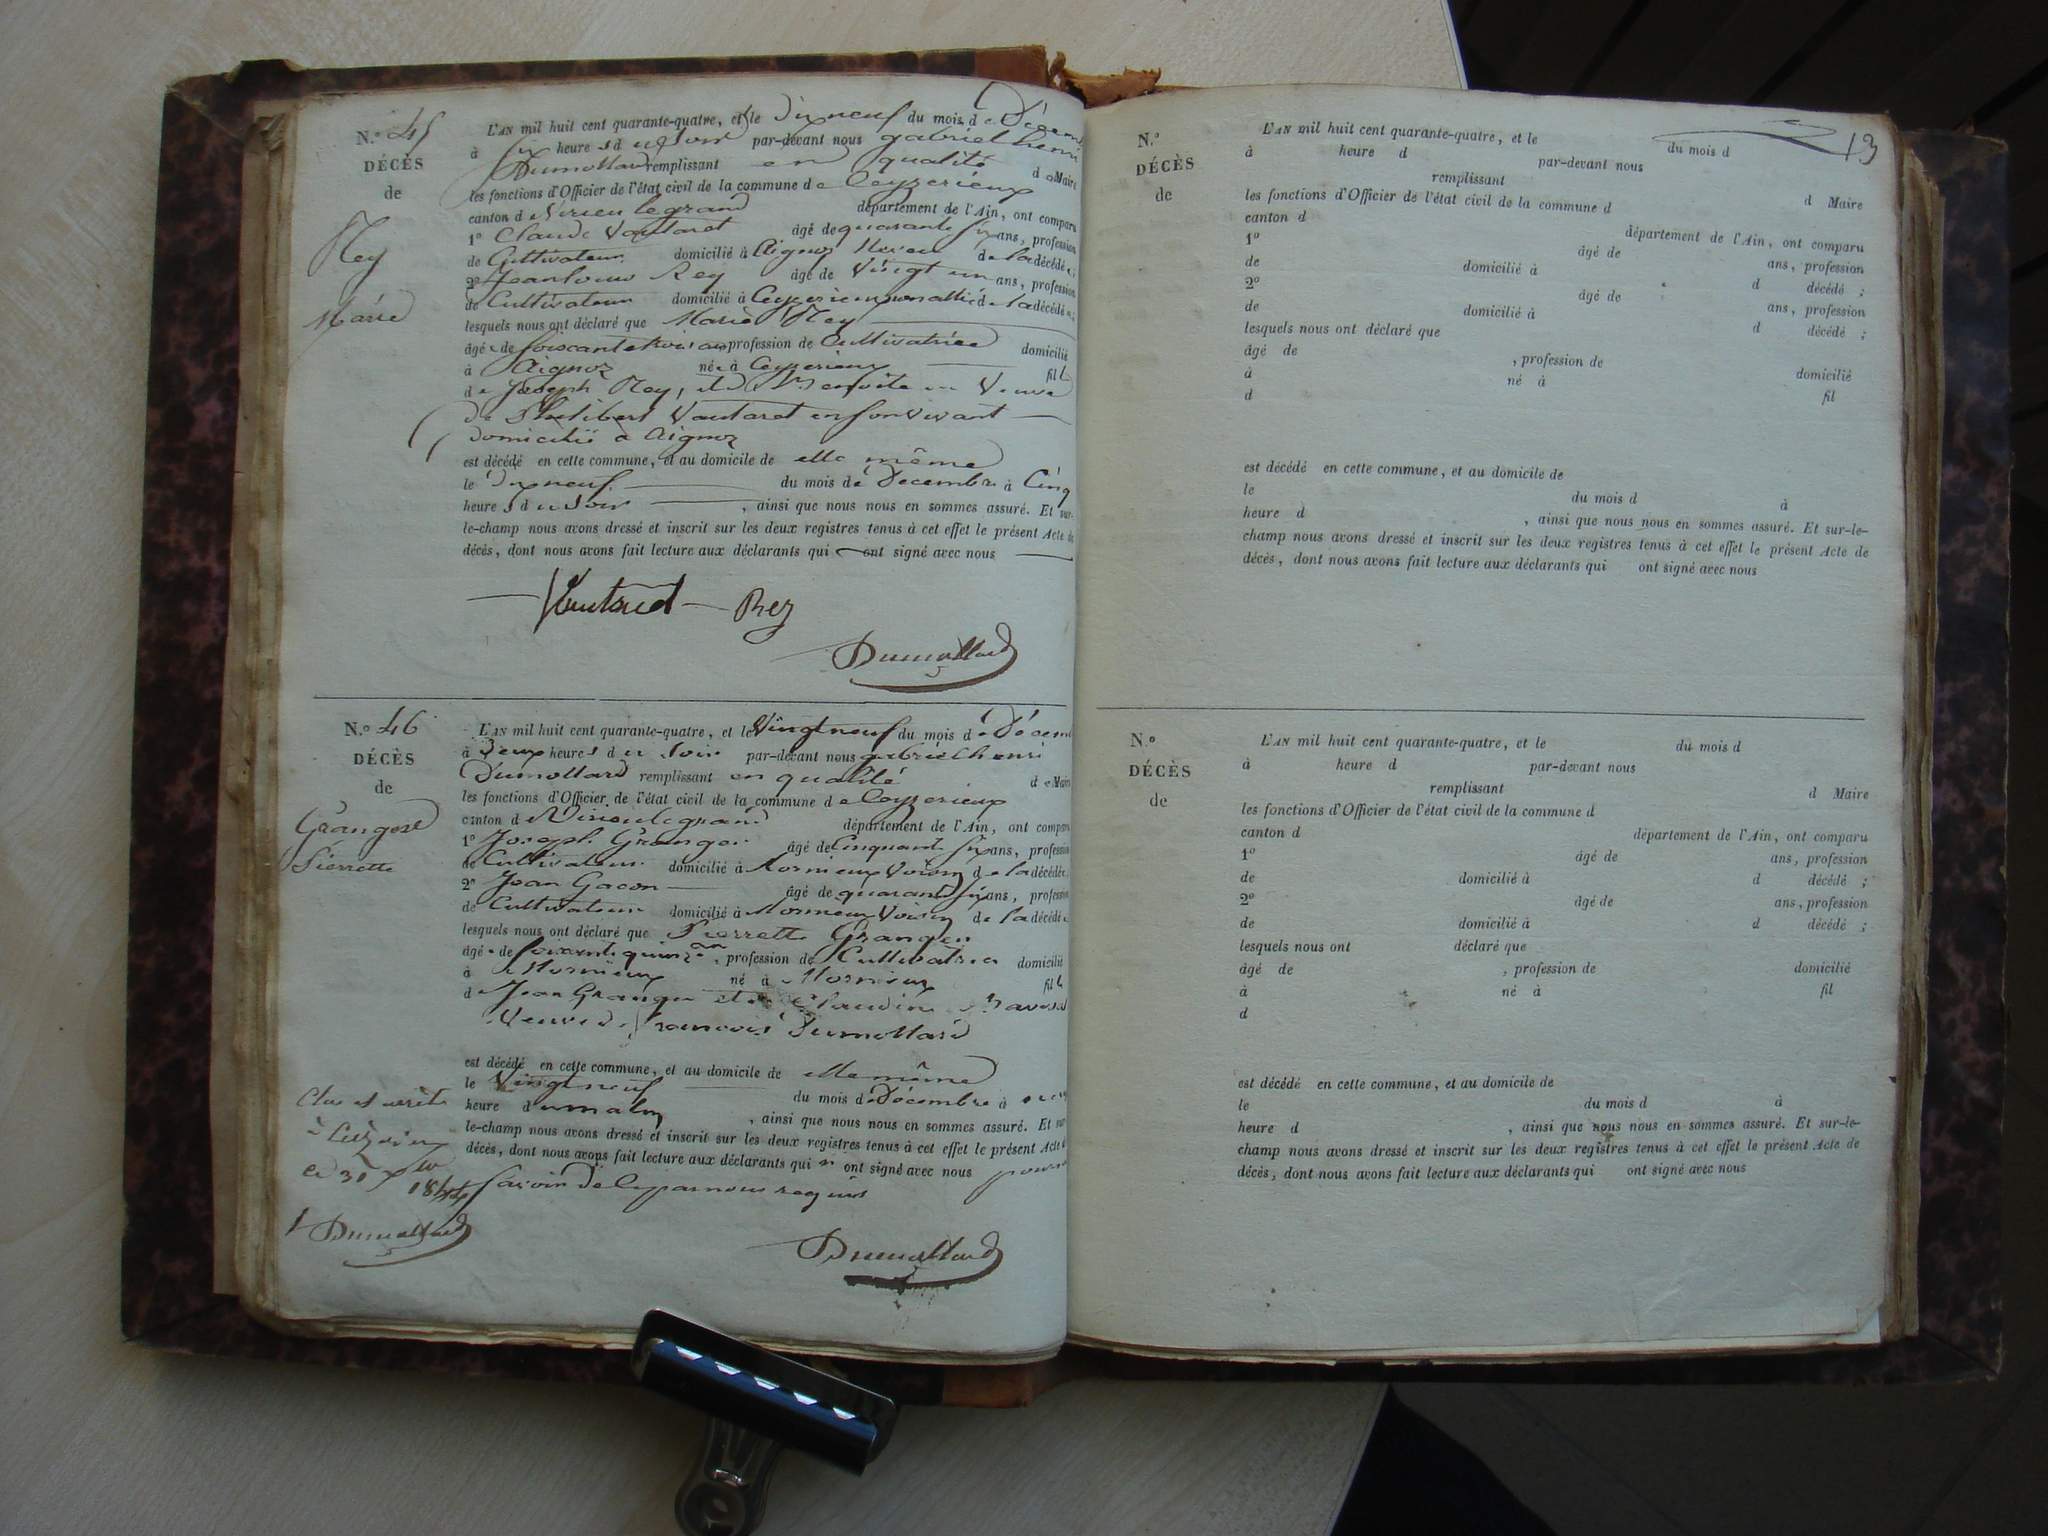 N.º 45
DÉCÈS
de
Rey
Marie
L'AN mil huit cent quarante-quatre, et le dix neuf du mois de Décem
à six heures du soir par-devant nous gabriel henri
Dumollard remplissant en qualité de Maire
les fonctions d'Officier de l'état civil de la commune de Ceyzerieux
canton de Virieu legrand département de l'Ain, ont comparu
1º Claude Vautaret âgé de quarante six ans, profession
de Cultivateur domicilié à Aignoz Neveu de la décédée ;
2º Jean louis Rey âgé de vingt un ans, profession
de Cultivateur domicilié à Ceyzerieux non allié de la décédée ;
lesquels nous ont déclaré que Marie Rey
âgée de soixante trois ans profession de Cultivatrice domicilié
à Aignoz née à Ceyzerieux fille
de Joseph Rey, et d en suite Veuve
de Philibert Vautaret en son vivant
domicilié à Aignoz
est décédé en cette commune, et au domicile de elle même
le dix neuf du mois de Decembre à Cinq
heures du soir , ainsi que nous nous en sommes assuré. Et sur-
le-champ nous avons dressé et inscrit sur les deux registres tenus à cet effet le présent Acte de
décès, dont nous avons fait lecture aux déclarants qui ont signé avec nous
Vautaret Rey
Dumollard
N.º 46
DÉCÈS
de
Granger
Pierrette
L'AN mil huit cent quarante-quatre, et le Vingt neuf du mois de Décem
à deux heures du soir par-devant nous gabriel henri
Dumollard remplissant en qualité de Maire
les fonctions d'Officier de l'état civil de la commune de Ceyzerieux
canton de Virieu legrand département de l'Ain, ont comparu
1º Joseph Granger âgé de Cinquante six ans, profession
de Cultivateur domicilié à Mornieux Voisin de la décédée
2º Jean Gacon âgé de quarante six ans, profession
de Cultivateur domicilié à Mornieux Voisin de la décédée
lesquels nous ont déclaré que Pierrette Granger
âgée de soixante quinze an, profession de Cultivatrice domicilié
à Mornieux né à Mornieux fille
de Jean Granger et de Claudine
Veuve de François Dumollard
est décédé en cette commune, et au domicile de elle même
le Vingt neuf du mois de Décembre à onze
heure du matin , ainsi que nous nous en sommes assuré. Et sur
le-champ nous avons dressé et inscrit sur les deux registres tenus à cet effet le présent Acte d
décès, dont nous avons fait lecture aux déclarants qui n ont signé avec nous pour ne
savoir de ce par nous requis
Dumollard
Clos et arrêté
à Ceyzerieux
le 31 Xbre
1844
Dumollard
13
N.º
DÉCÈS
de
L'AN mil huit cent quarante-quatre, et le du mois d
à heure d par-devant nous
remplissant d Maire
les fonctions d'Officier de l'état civil de la commune d
canton d département de l'Ain, ont comparu
1º âgé de ans, profession
de domicilié à d décédé ;
2º âgé de ans, profession
de domicilié à d décédé ;
lesquels nous ont déclaré que
âgé de , profession de domicilié
à né à fil
d
est décédé en cette commune, et au domicile de
le du mois d à
heure d , ainsi que nous nous en sommes assuré. Et sur-le-
champ nous avons dressé et inscrit sur les deux registres tenus à cet effet le présent Acte de
décès, dont nous avons fait lecture aux déclarants qui ont signé avec nous
N.º
DÉCÈS
de
L'AN mil huit cent quarante-quatre, et le du mois d
à heure d par-devant nous
remplissant d Maire
les fonctions d'Officier de l'état civil de la commune d
canton d département de l'Ain, ont comparu
1º âgé de ans, profession
de domicilié à d décédé ;
2º âgé de ans, profession
de domicilié à d décédé ;
lesquels nous ont déclaré que
âgé de , profession de domicilié
à né à fil
d
est décédé en cette commune, et au domicile de
le du mois d à
heure d , ainsi que nous nous en sommes assuré. Et sur-le-
champ nous avons dressé et inscrit sur les deux registres tenus à cet effet le présent Acte de
décès, dont nous avons fait lecture aux déclarants qui ont signé avec nous